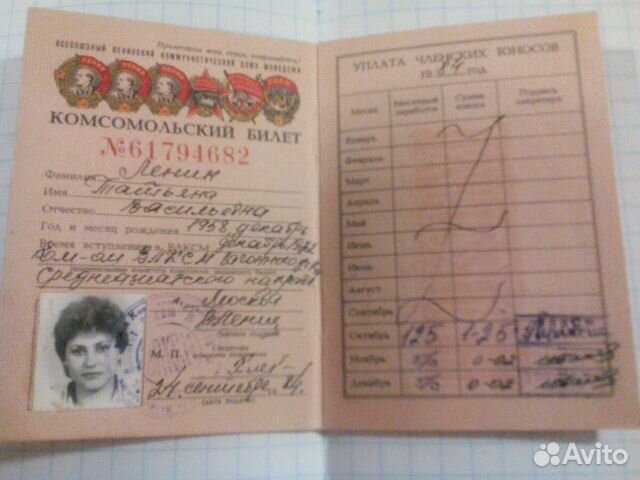 Пролетарии всех стран, соединяйтесь!
ВСЕСОЮЗНЫЙ ЛЕНИНСКИЙ КОММУНИСТИЧЕСКИЙ СОЮЗ МОЛОДЕЖИ
КОМСОМОЛЬСКИЙ БИЛЕТ
№61794682
Фамилия Ленин
Имя Татьяна
Отчество Васильевна
Год и месяц рождения 1958 декабрь
Время вступления в ВЛКСМ декабрь
Ком-ом ВЛКСМ
Среднеазиатского
Москва
М. П.
24 сентября 1984 г.
УПЛАТА ЧЛЕНСКИХ ВЗНОСОВ
1984 год
Месяц Месячный заработок Сумма взноса Подпись секретаря
Январь
Февраль
Март
Апрель
Май
Июнь
Июль
Август
Сентябрь
Октябрь 125 1-25
Ноябрь 0-02
Декабрь 0-02
Avito